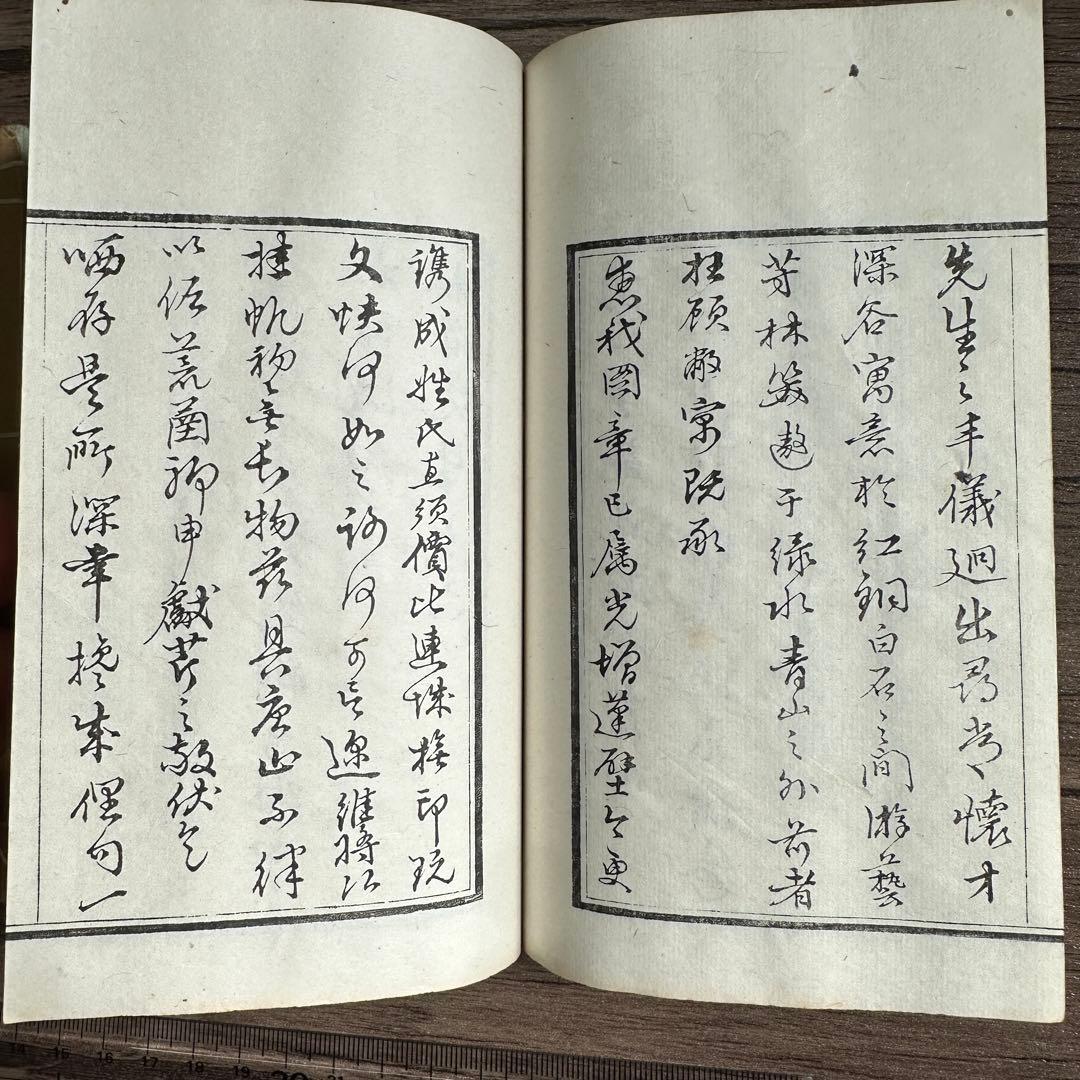 先生之丰儀迥出尋常懷才
深谷寓意於紅銅白石之間游藝
芳林遨于綠水青山之外前者
枉顧敝寓既承
惠我圖章已屬光增蓬壁今更
鐫成姓氏直須價比連城撫印玩
文快何如之謝何可言邇維將次
挂帆初無長物茲具唐山不律
以佐荒函聊申獻芹之敬伏乞
哂存是所深幸擬成俚句一